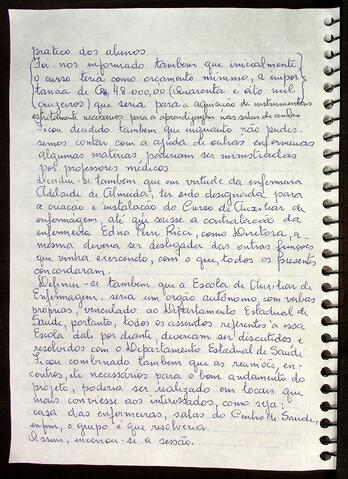 prático dos alunos
Foi-nos informado também que inicialmente
o curso teria como orçamento mínimo, a impor-
tância de Cr$ 48.000,00 (Quarenta e oito mil
cruzeiros) que seria para a aquisição de instrumentais
estritamente necessários para a aprendizagem nas salas de aulas
Ficou decidido também que enquanto não pudes-
semos contar com a ajuda de outras enfermeiras
algumas matérias poderiam ser ministradas
por professores médicos.
Decidiu-se também que em virtude da enfermeira
Adelaide de Almeida, ter sido designada para
a criação e instalação do Curso de Auxiliar de
enfermagem, até que saisse a contratação da
enfermeira Edna Peri Ricci, como Diretora, a
mesma deveria ser desligada das outras funções
que vinha exercendo, com o que, todos os presentes
concordaram.
Definiu-se também que a Escola de Auxiliar de
Enfermagem, seria um orgão autônomo, com verbas
próprias, vinculado ao Departamento Estadual de
Saúde, portanto, todos os assuntos referentes a essa
Escola dali por diante, deveriam ser discutidos e
resolvidos com o Departamento Estadual de Saúde
Ficou combinado também que as reuniões, en-
contros, etc necessários para o bom andamento do
projeto, poderia ser realizado em locais que
mais conviesse aos interessados, como seja:
casa das enfermeiras, salas do Centro de Saúde,
enfim, o grupo é que resolveria.
Assim, encerrou-se a sessão.